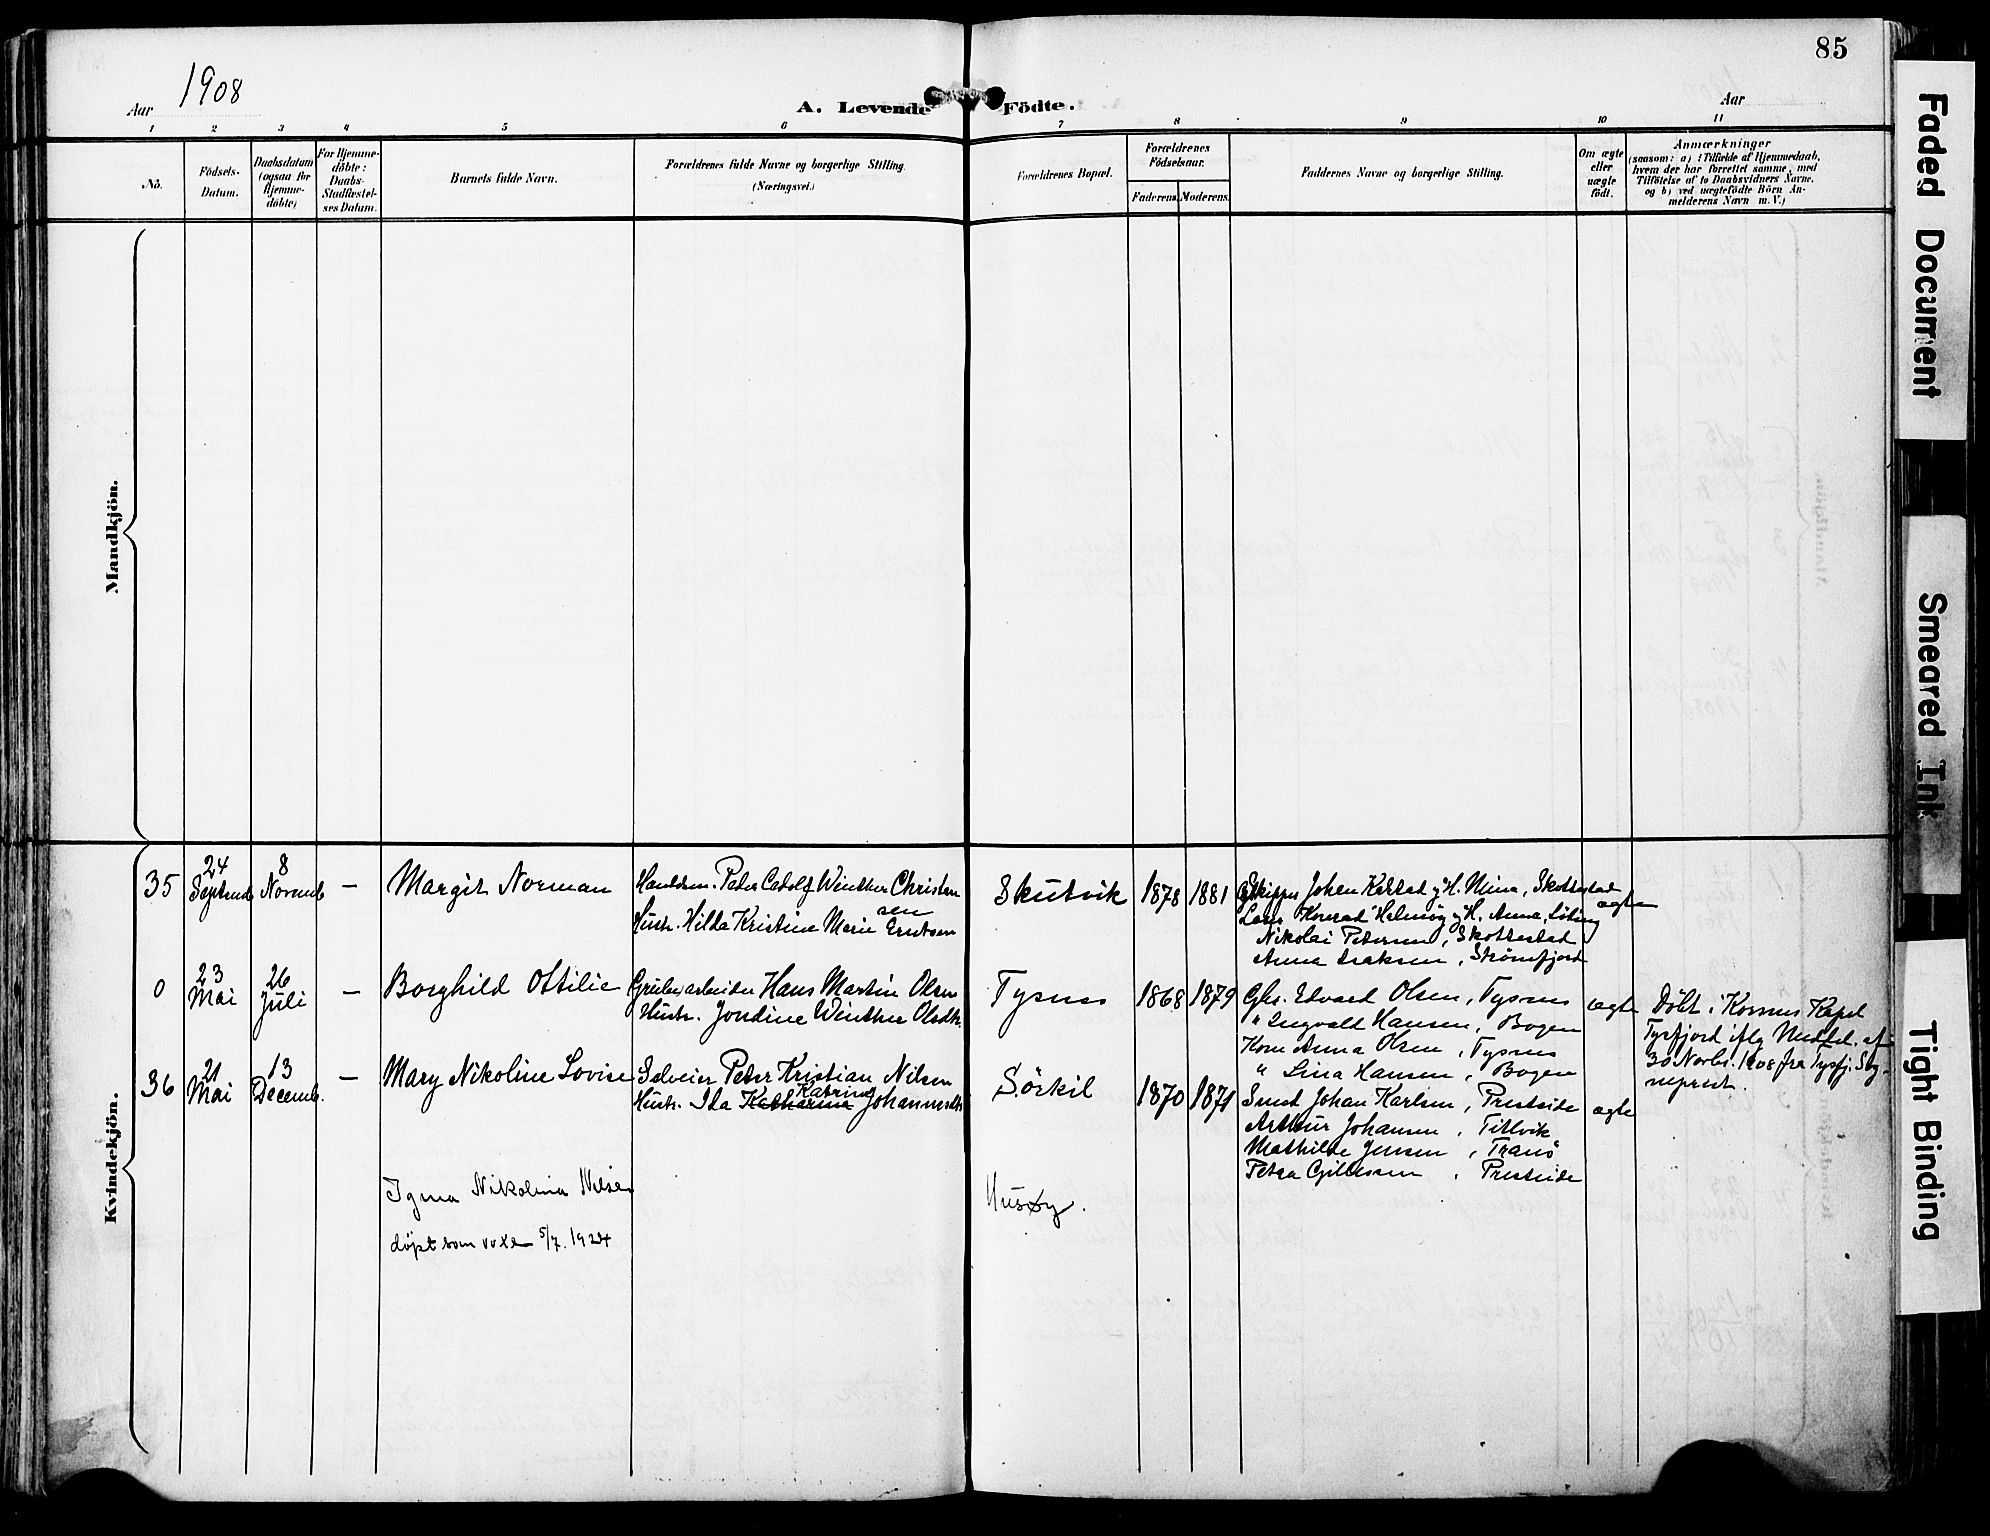 85
Aar 1908
A. Levende Födte.
Aar
1 2 3 4 5 6 7 8 9 10 11
No.
Födsels-
Datum.
Daabsdatum
(ogsaa for
Hjemme-
döbte)
For Hjemme-
döbte:
Daabs-
Stadfæstel-
ses Datum.
Barnets fulde Navn.
Forældrenes fulde Navne og borgerlige Stilling.
(Næringsvei.)
Forældrenes Bopæl.
Forældrenes
Födselsaar.
Faderens. Moderens.
Faddernes Navne og borgerlige Stilling.
Om ægte
eller
uægte
födt.
Anmærkninger
(saasom: a) i Tilfælde af Hjemmedaab,
hvem der har forrettet samme, med
Tilföielse af to Daabsvidners Navne,
og b) ved uægtefödte Börn An-
melderens Navn m. V.)
Mandkjön.
Kvindekjön.
35
24
Septemb
8
Novemb
—
Margit Norman
Handelsm. Peder Cadolf Winther Christen
sen
Hustr. Hilda Kristine Marie Erntsen
Skutvik
1878
1881
Skipper Johan Kersad g H. Mina, Skottestad
Lars Konrad Helmsøg g H. Anna,
Nikolai Petersen, Skottestad
Anna Isaksen, Strömfjord
ægte
0
23
Mai
26
Juli
—
Borghild Ottilie
Grubearbeider Hans Martin Olsen
Hustr. Jondine Winther Olsdtr.
Tysnes
1868
1879
Gbr. Edvard Olsen, Tysnes
" Ingvald Hansen, Bogen
Kone Anna Olsen, Tysnes
" Lina Hansen, Bogen
ægte
Döbt i Korsnes Kapel
Tysfjord iflg Meddel. af
30 Novbr. 1908 fra Tysfj. Sog-
neprest.
36
21
Mai
13
Decemb.
—
Mary Nikoline Lovise
Selveier Peter Kristian Nilsen
Katrine
Hustr. Ida Katharina Johannesdtr
Sörkil
1870
1871
Smed Johan Karlsen, Presteide
Arthur Johansen, Tillvik
Mathilde Jensen, Tranö
Petra Gjillesen, Presteide
ægte
Igna Nikolina Nilsen
Husøy.
döpt som voxen 5/7. 1924
Faded Document
Smeared Ink
Tight Binding